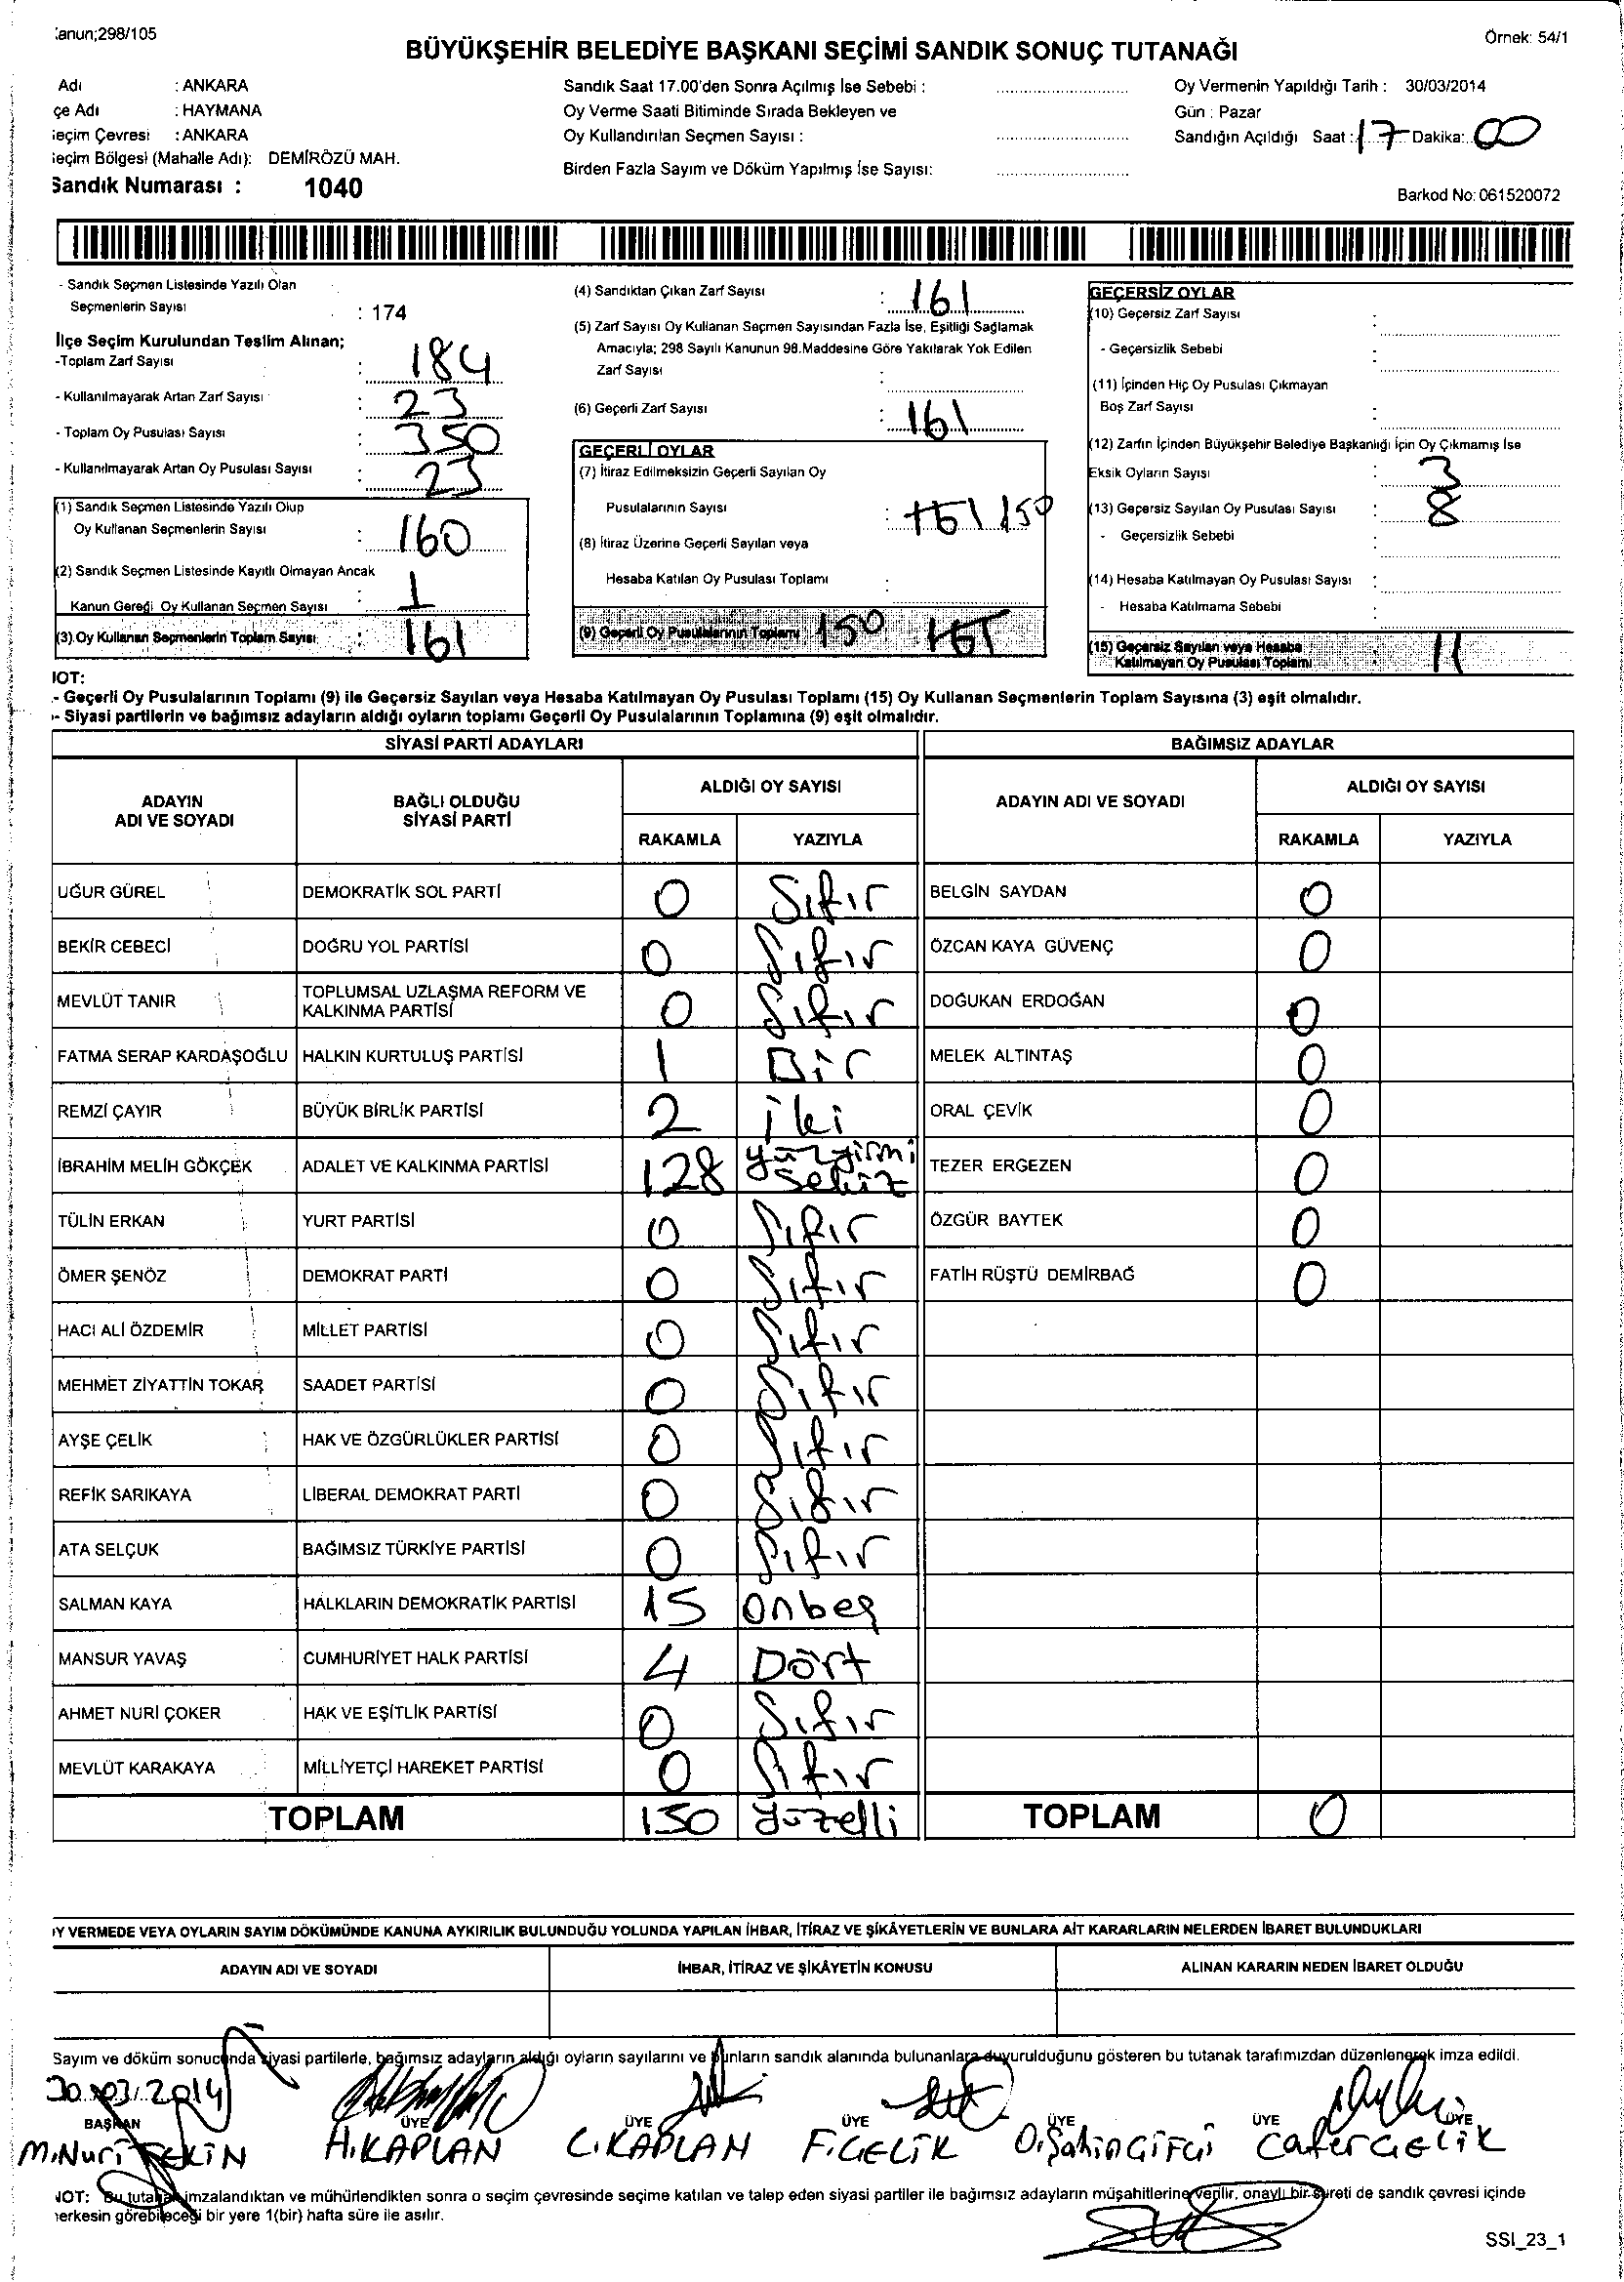 Kanun;298/105
Örnek: 54/1
BÜYÜKŞEHİR BELEDİYE BAŞKANI SEÇİMİ SANDIK SONUÇ TUTANAĞI
Adı : ANKARA
çe Adı : HAYMANA
eçim Çevresi : ANKARA
eçim Bölgesi (Mahalle Adı): DEMİRÖZÜ MAH.
Sandık Numarası : 1040
Sandık Saat 17.00'den Sonra Açılmış İse Sebebi :
Oy Verme Saati Bitiminde Sırada Bekleyen ve
Oy Kullandırılan Seçmen Sayısı :
Birden Fazla Sayım ve Döküm Yapılmış İse Sayısı:
Oy Vermenin Yapıldığı Tarih : 30/03/2014
Gün : Pazar
Sandığın Açıldığı Saat : 17 Dakika: 00
Barkod No: 061520072
- Sandık Seçmen Listesinde Yazılı Olan
Seçmenlerin Sayısı : 174
İlçe Seçim Kurulundan Teslim Alınan;
-Toplam Zarf Sayısı : 184
- Kullanılmayarak Artan Zarf Sayısı : 23
- Toplam Oy Pusulası Sayısı : 350
- Kullanılmayarak Artan Oy Pusulası Sayısı : 23
(1) Sandık Seçmen Listesinde Yazılı Olup
Oy Kullanan Seçmenlerin Sayısı : 160
(2) Sandık Seçmen Listesinde Kayıtlı Olmayan Ancak
Kanun Gereği Oy Kullanan Seçmen Sayısı : 1
(3) Oy Kullanan Seçmenlerin Toplam Sayısı : 161
(4) Sandıktan Çıkan Zarf Sayısı : 161
(5) Zarf Sayısı Oy Kullanan Seçmen Sayısından Fazla İse, Eşitliği Sağlamak
Amacıyla; 298 Sayılı Kanunun 98.Maddesine Göre Yakılarak Yok Edilen
Zarf Sayısı :
(6) Geçerli Zarf Sayısı : 161
GEÇERLİ OYLAR
(7) İtiraz Edilmeksizin Geçerli Sayılan Oy
Pusulalarının Sayısı : 161 150
(8) İtiraz Üzerine Geçerli Sayılan veya
Hesaba Katılan Oy Pusulası Toplamı :
(9) Geçerli Oy Pusulalarının Toplamı 150 161
GEÇERSİZ OYLAR
(10) Geçersiz Zarf Sayısı :
- Geçersizlik Sebebi :
(11) İçinden Hiç Oy Pusulası Çıkmayan
Boş Zarf Sayısı :
(12) Zarfın İçinden Büyükşehir Belediye Başkanlığı İçin Oy Çıkmamış İse
Eksik Oyların Sayısı : 3
(13) Geçersiz Sayılan Oy Pusulası Sayısı : 8
- Geçersizlik Sebebi :
(14) Hesaba Katılmayan Oy Pusulası Sayısı :
- Hesaba Katılmama Sebebi :
(15) Geçersiz Sayılan veya Hesaba
Katılmayan Oy Pusulası Toplamı : 11
NOT:
- Geçerli Oy Pusulalarının Toplamı (9) ile Geçersiz Sayılan veya Hesaba Katılmayan Oy Pusulası Toplamı (15) Oy Kullanan Seçmenlerin Toplam Sayısına (3) eşit olmalıdır.
- Siyasi partilerin ve bağımsız adayların aldığı oyların toplamı Geçerli Oy Pusulalarının Toplamına (9) eşit olmalıdır.
SİYASİ PARTİ ADAYLARI BAĞIMSIZ ADAYLAR
ADAYIN ADI VE SOYADI BAĞLI OLDUĞU SİYASİ PARTİ ALDIĞI OY SAYISI ADAYIN ADI VE SOYADI ALDIĞI OY SAYISI
RAKAMLA YAZIYLA RAKAMLA YAZIYLA
UĞUR GÜREL DEMOKRATİK SOL PARTİ 0 Sıfır BELGİN SAYDAN 0
BEKİR CEBECİ DOĞRU YOL PARTİSİ 0 Sıfır ÖZCAN KAYA GÜVENÇ 0
MEVLÜT TANIR TOPLUMSAL UZLAŞMA REFORM VE KALKINMA PARTİSİ 0 Sıfır DOĞUKAN ERDOĞAN 0
FATMA SERAP KARDAŞOĞLU HALKIN KURTULUŞ PARTİSİ 1 Bir MELEK ALTINTAŞ 0
REMZİ ÇAYIR BÜYÜK BİRLİK PARTİSİ 2 iki ORAL ÇEVİK 0
İBRAHİM MELİH GÖKÇEK ADALET VE KALKINMA PARTİSİ 128 yüzyirmi sekiz TEZER ERGEZEN 0
TÜLİN ERKAN YURT PARTİSİ 0 Sıfır ÖZGÜR BAYTEK 0
ÖMER ŞENÖZ DEMOKRAT PARTİ 0 Sıfır FATİH RÜŞTÜ DEMİRBAĞ 0
HACI ALİ ÖZDEMİR MİLLET PARTİSİ 0 Sıfır
MEHMET ZİYATTİN TOKAR SAADET PARTİSİ 0 Sıfır
AYŞE ÇELİK HAK VE ÖZGÜRLÜKLER PARTİSİ 0 Sıfır
REFİK SARIKAYA LİBERAL DEMOKRAT PARTİ 0 Sıfır
ATA SELÇUK BAĞIMSIZ TÜRKİYE PARTİSİ 0 Sıfır
SALMAN KAYA HALKLARIN DEMOKRATİK PARTİSİ 15 onbeş
MANSUR YAVAŞ CUMHURİYET HALK PARTİSİ 4 Dört
AHMET NURİ ÇOKER HAK VE EŞİTLİK PARTİSİ 0 Sıfır
MEVLÜT KARAKAYA MİLLİYETÇİ HAREKET PARTİSİ 0 Sıfır
TOPLAM 150 yüzelli TOPLAM 0
OY VERMEDE VEYA OYLARIN SAYIM DÖKÜMÜNDE KANUNA AYKIRILIK BULUNDUĞU YOLUNDA YAPILAN İHBAR, İTİRAZ VE ŞİKÂYETLERİN VE BUNLARA AİT KARARLARIN NELERDEN İBARET BULUNDUKLARI
ADAYIN ADI VE SOYADI İHBAR, İTİRAZ VE ŞİKÂYETİN KONUSU ALINAN KARARIN NEDEN İBARET OLDUĞU
Sayım ve döküm sonucunda siyasi partilerle, bağımsız adayların aldığı oyların sayılarını ve bunların sandık alanında bulunanlara duyurulduğunu gösteren bu tutanak tarafımızdan düzenlenerek imza edildi.
30.03.2014
BAŞKAN ÜYE ÜYE ÜYE ÜYE ÜYE ÜYE
M.Nuri TEKİN H.KAPLAN C.KAPLAN F.ÇELİK O.Şahin ÇİFÇİ Cafer ÇELİK
NOT: Bu tutanak imzalandıktan ve mühürlendikten sonra o seçim çevresinde seçime katılan ve talep eden siyasi partiler ile bağımsız adayların müşahitlerine verilir, onaylı bir sureti de sandık çevresi içinde
herkesin görebileceği bir yere 1(bir) hafta süre ile asılır.
SSI_23_1